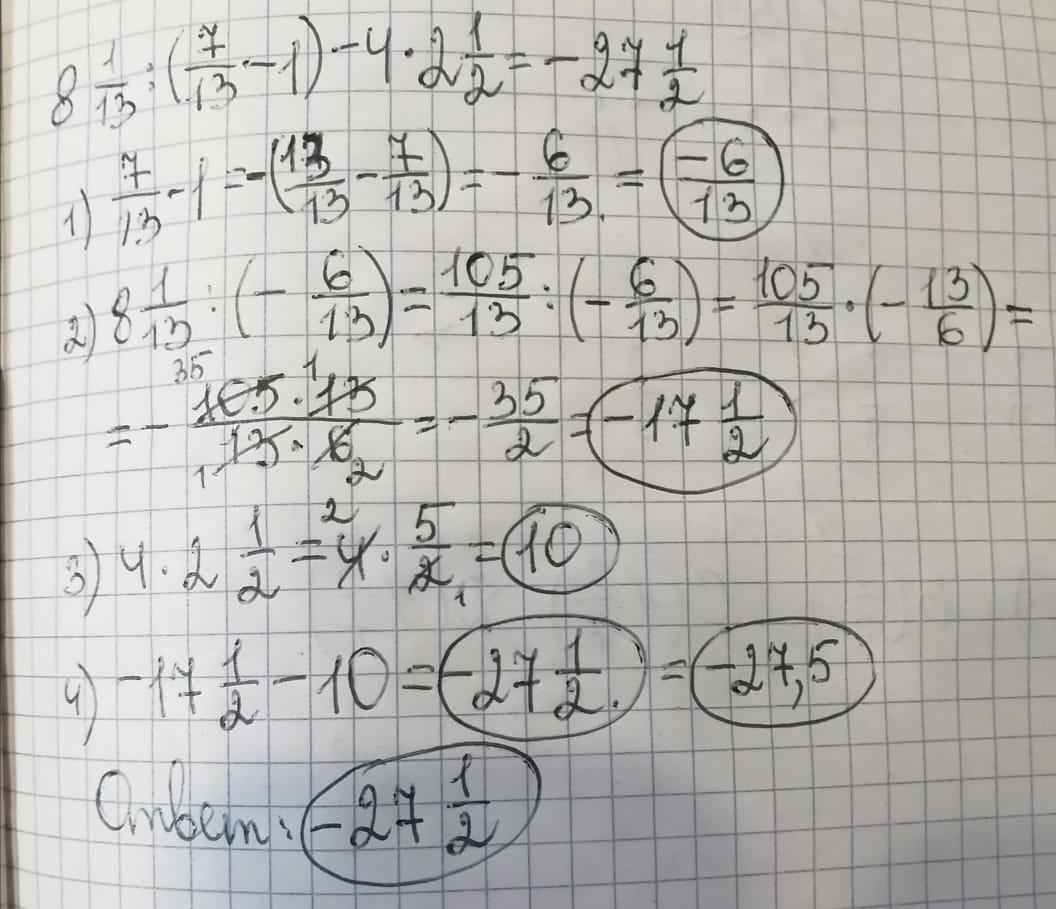 8 1/13 : (7/13 - 1) - 4 · 2 1/2 = -27 1/2
1) 7/13 - 1 = -(13/13 - 7/13) = - 6/13 = -6/13
2) 8 1/13 : (- 6/13) = 105/13 : (- 6/13) = 105/13 · (- 13/6) =
= - 35 105 · 1 13 / 1 13 · 6 2 = - 35/2 = -17 1/2
3) 4 · 2 1/2 = 2 4 · 5/2 1 = 10
4) -17 1/2 - 10 = -27 1/2 = -27,5
Ответ: -27 1/2